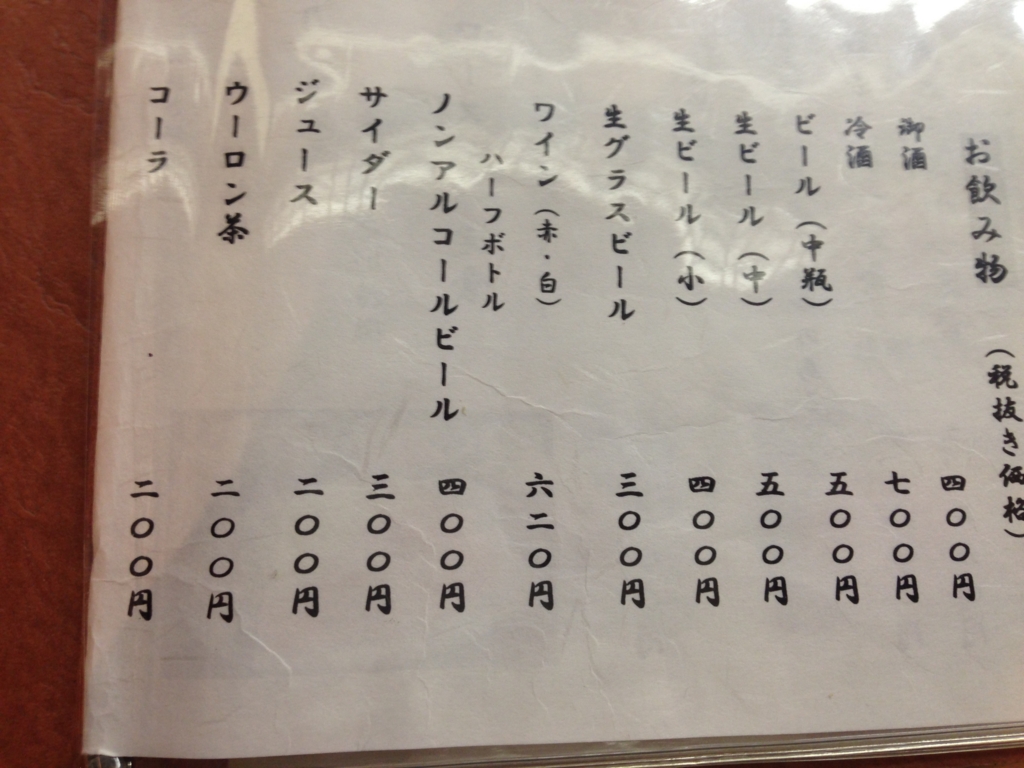 お飲み物
(税抜き価格)
御酒 四〇〇円
冷酒 七〇〇円
ビール(中瓶) 五〇〇円
生ビール(中) 五〇〇円
生ビール(小) 四〇〇円
生グラスビール 三〇〇円
ワイン(赤・白) 六二〇円
ハーフボトル
ノンアルコールビール 四〇〇円
サイダー 三〇〇円
ジュース 二〇〇円
ウーロン茶 二〇〇円
コーラ 二〇〇円